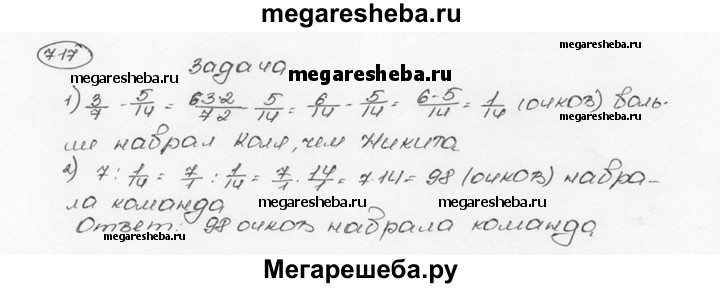 megaresheba.ru
717
megaresheba.ru
megaresheba.ru
задача
megaresheba.ru
1) 3/7 - 5/14 = 3·2/7·2 - 5/14 = 6/14 - 5/14 = 6-5/14 = 1/14 (очков) боль-
ше набрал Коля, чем Никита
2) 7 : 1/14 = 7/1 : 1/14 = 7/1 · 14/1 = 7·14 = 98 (очков) набра-
ла команда
megaresheba.ru
megaresheba.ru
Ответ: 98 очков набрала команда
megaresheba.ru
megaresheba.ru
Мегарешеба.ру